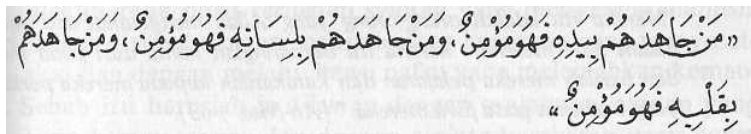 «مَنْ جَاهَدَهُمْ بِيَدِهِ فَهُوَ مُؤْمِنٌ، وَمَنْ جَاهَدَهُمْ بِلِسَانِهِ فَهُوَ مُؤْمِنٌ، وَمَنْ جَاهَدَهُمْ
بِقَلْبِهِ فَهُوَ مُؤْمِنٌ»